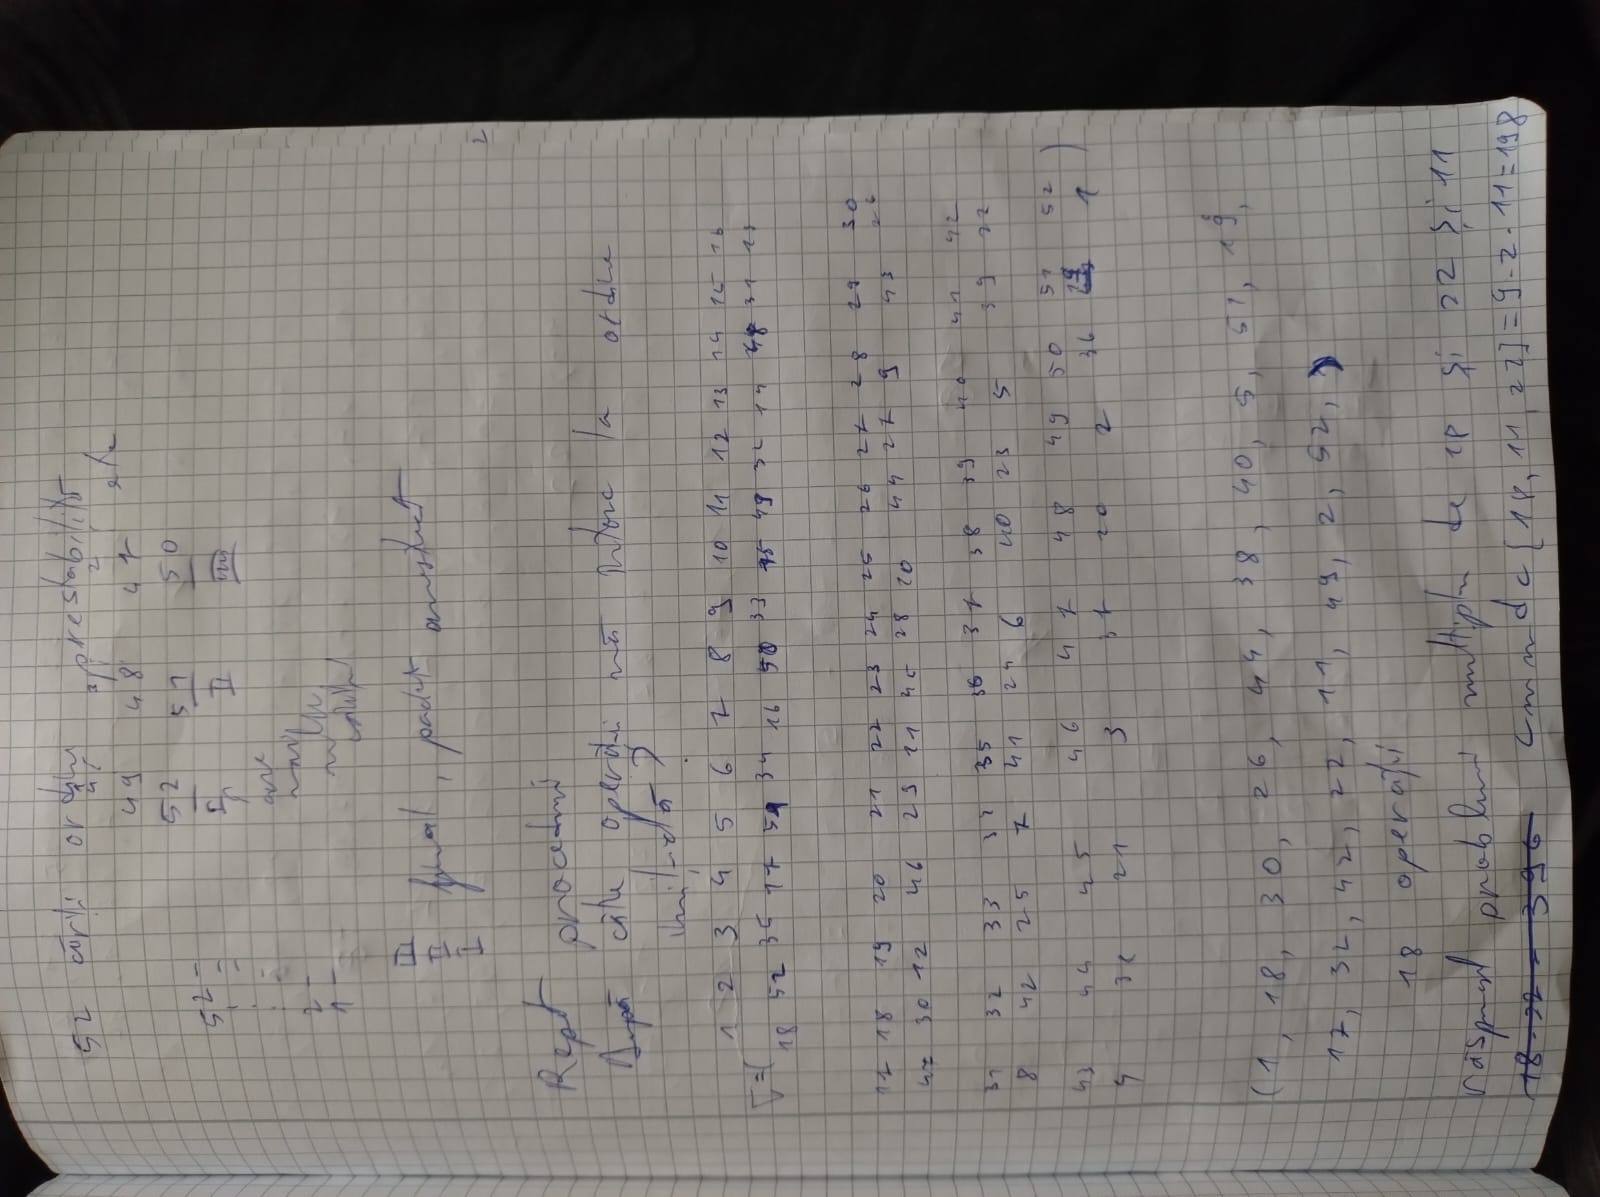 52 cărți ordin prestabilită
4 3 2
49 48 47 etc
52 51 50
52 - I II III
2 -
1 -
are
mai
multe
cărți
III
II
I
final, pachet amestecat
Rept procedeu
După câte operații mă întorc la ordinea
inițială?
1 2 3 4 5 6 7 8 9 10 11 12 13 14 15 16
∇=( 18 52 35 17 51 34 16 50 33 15 49 32 14 48 31 13
17 18 19 20 21 22 23 24 25 26 27 28 29 30
47 30 12 46 29 11 45 28 10 44 27 9 43 26
31 32 33 34 35 36 37 38 39 40 41 42
8 42 25 7 41 24 6 40 23 5 39 22
43 44 45 46 47 48 49 50 51 52 )
4 38 21 3 37 20 2 36 19 1
(1, 18, 30, 26, 44, 38, 40, 5, 51, 19,
17, 32, 42, 22, 11, 49, 2, 52, )
18 operații
răspuns problemei multiplu de 18 și 22 și 11
18·22 = 396 cmmdc [18, 11, 22] = 9·2·11 = 198